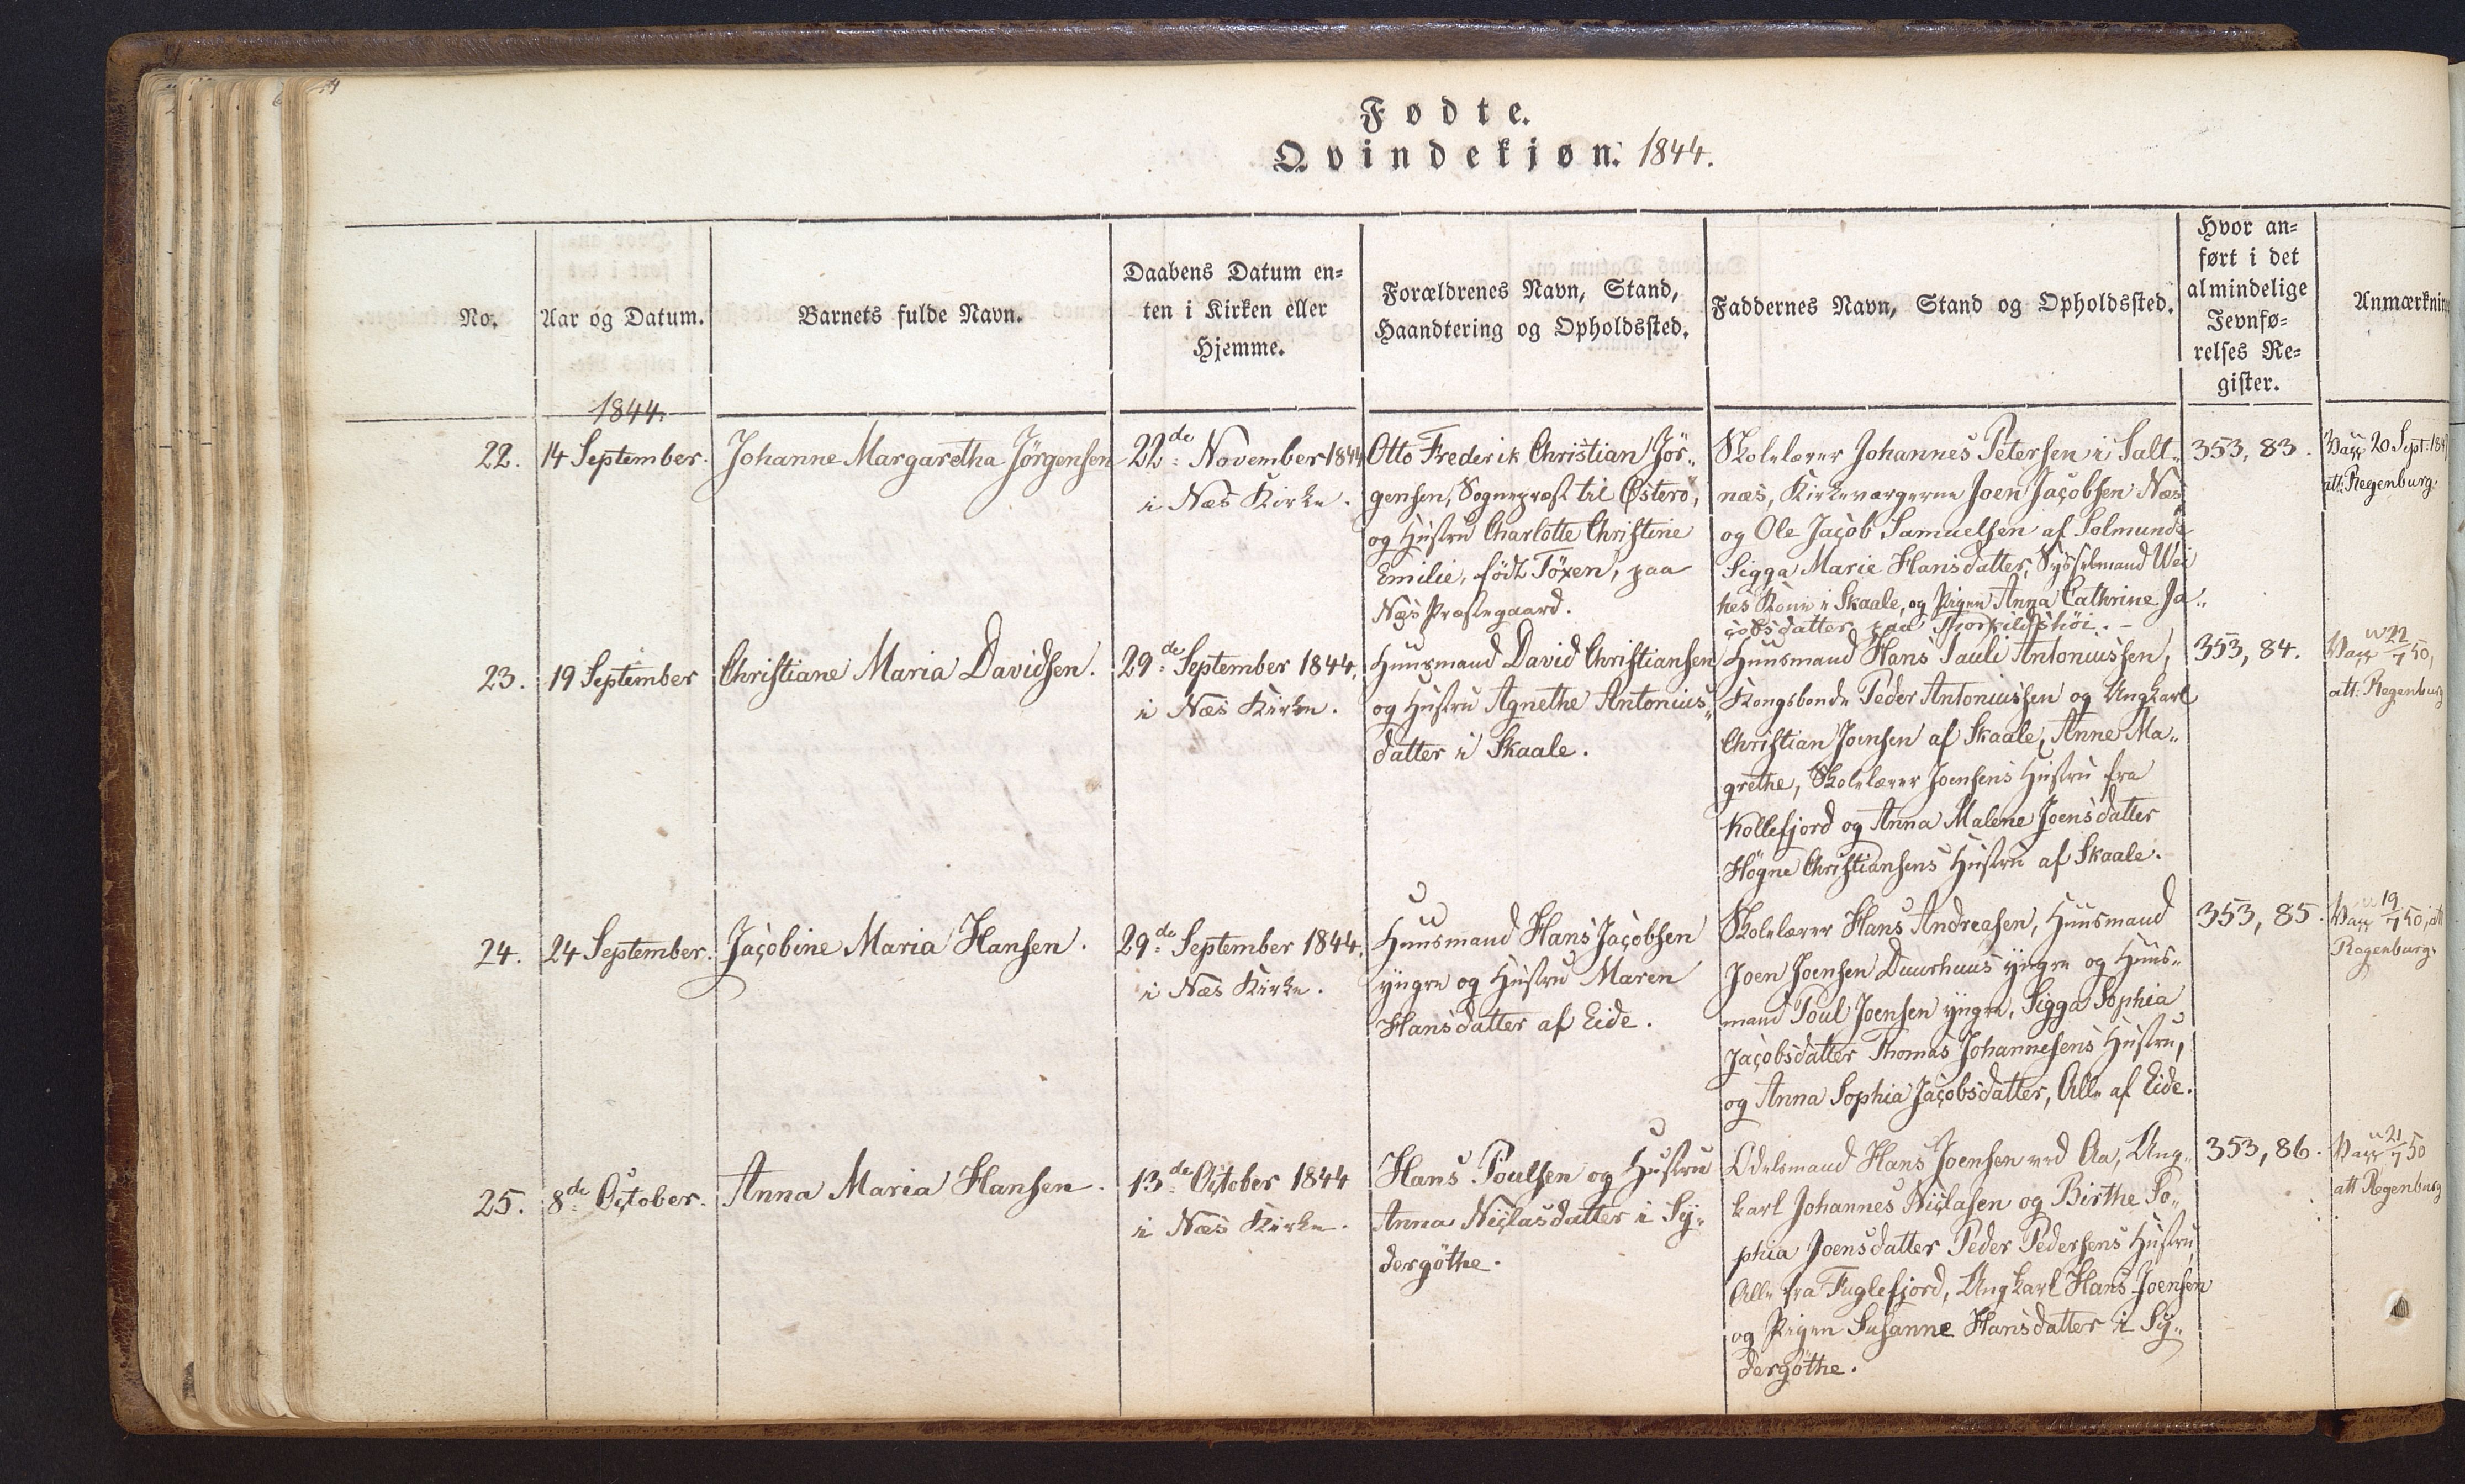 Fødte.
Qvindekjøn. 1844.
No.
Aar og Datum.
Barnets fulde Navn.
Daabens Datum en=
ten i Kirken eller
Hjemme.
Forældrenes Navn, Stand,
Haandtering og Opholdssted.
Faddernes Navn, Stand og Opholdssted.
Hvor an=
ført i det
almindelige
Jevnfø=
relses Re=
gister.
Anmærknin
1844.
22.
14 September.
Johanne Margaretha Jörgensen
22de November 1844
i Næs Kirke.
Otto Frederik Christian Jör„
gensen, Sognepræst til Österö,
og Hustru Charlotte Christine
Emilie, födt Töxen, paa
Næs Præstegaard.
Skolelærer Johannes Petersen i Salt„
næs, Kirkeværgerne Joen Jacobsen Næs
og Ole Jacob Samuelsen af Solmunde
Sigga Marie Hansdatter, Sysselmand Wei
hes Kone i Skaale, og Pigen Anna Cathrine Ja„
cobsdatter paa Thorkildshöi. –
353, 83.
Vacc 20 Sept: 184
att: Regenburg.
23.
19 September
Christiane Maria Davidsen.
29de September 1844.
i Næs Kirke.
Huusmand David Christiansen
og Hustru Agnethe Antonius„
datter i Skaale.
Huusmand Hans Pauli Antoniussen,
Kongsbonde Peder Antoniussen og Ungkarl
Christian Joensen af Skaale, Anne Ma„
grethe, Skolelærer Joensens Hustru fra
Kollefjord og Anna Malene Joensdatter
Högne Christiansens Hustru af Skaale.
353, 84.
Vacc 22/7 50,
att: Regenburg
24.
24 September.
Jacobine Maria Hansen.
29de September 1844.
i Næs Kirke.
Huusmand Hans Jacobsen
yngre og Hustru Maren
Hansdatter af Eide.
Skolelærer Hans Andreasen, Huusmand
Joen Joensen Duurhuus yngre og Huus„
mand Poul Joensen yngre, Sigga Sophia
Jacobsdatter Thomas Johannesens Hustru,
og Anna Sophia Jacobsdatter, Alle af Eide.
353, 85.
Vacc 19/7 50, att
Regenburg.
25.
8de October.
Anna Maria Hansen.
13de October 1844
i Næs Kirke.
Hans Poulsen og Hustru
Anna Niclasdatter i Sy„
dergöthe.
Odelsmand Hans Joensen ved Aa, Ung„
karl Johannes Niclasen og Birthe So„
phia Joensdatter Peder Pedersens Hustru,
Alle fra Fuglefjord, Ungkarl Hans Joensen
og Pigen Susanne Hansdatter i Sy„
dergöthe.
353, 86.
Vacc 21/7 50
att Regenburg